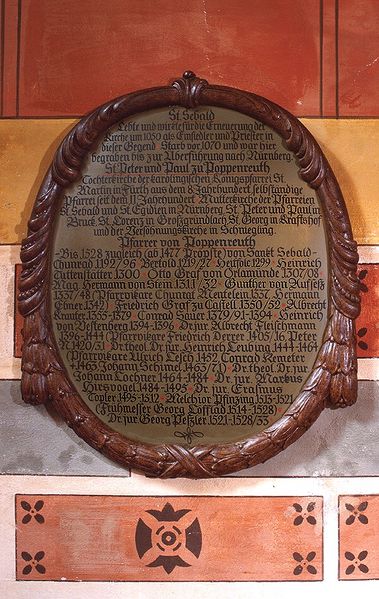 St. Sebald
Lebte und wirkte für die Erneuerung der
Kirche um 1050 als Einsiedler und Priester in
dieser Gegend. Starb vor 1070 und war hier
begraben bis zur Überführung nach Nürnberg.
St. Peter und Paul zu Poppenreuth
Tochterkirche der karolingischen Königspfarrei St.
Martin in Fürth aus dem 8. Jahrhundert, selbständige
Pfarrei seit dem 11. Jahrhundert. Mutterkirche der Pfarreien
St. Sebald und St. Egidien in Nürnberg, St. Peter und Paul in
Bruck, St. Lorenz in Großgründlach, St. Georg in Kraftshof
und der Versöhnungskirche in Schniegling.
Pfarrer von Poppenreuth
-Bis 1528 zugleich (ab 1477 Pröpste) von Sankt Sebald-
Cunrad 1192/96 Bertold 1219/27 Heinrich
1300 Otto Graf von Orlamünde 1307/08
Mag. Hermann von Stein 1311/32 Günther von Aufseß
1337/48 Pfarrvikare Chunrat 1352, Hermann
1342 Friedrich Graf zu Castell 1350/52 Albrecht
1355-1379 Conrad 1379/91-1394 Heinrich
von Vestenberg 1394-1396 Dr. iur. Albrecht Fleischmann
1396-1444 (Pfarrvikare Friedrich 1405/16, Peter
N. 1420/31) Dr. theol. Dr. iur. Heinrich Leubing 1444-1464
(Pfarrvikare Ulrich 1452, Conrad
1463, Johann 1463/70) Dr. theol. Dr. iur.
Johann Lochner 1464-1484 Dr. iur. Markus
Hirsvogel 1484-1495 Dr. iur. Erasmus
Topler 1495-1512 Melchior Pfinzing 1512-1521
(Frühmesser Georg 1514-1528)
Dr. iur. Georg Peßler 1521-1528/33